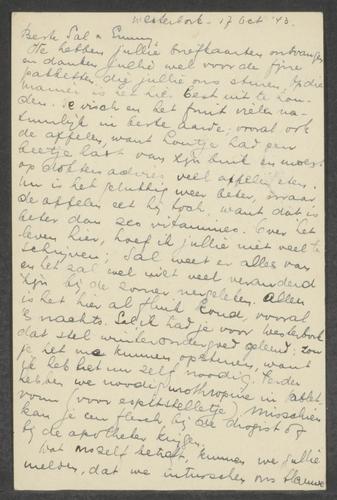 Westerbork - 17 Oct '43.
Beste Sal & Emmy
We hebben jullie briefkaarten ontvangen
en danken jullie wel voor de fijne
pakketten die jullie ons sturen, Op die
manier is het hier best uit te hou-
den. De visch en het fruit vielen na-
tuurlijk in beste aarde, vooral ook
de appelen, want had een
beetje last van zijn buik en moest
op dokters advies veel appelen eten.
Nu is het gelukkig weer beter, maar
de appelen eet hij toch, want dat is
beter dan zes vitamines. Over het
leven hier, hoef ik jullie niet veel te
schrijven; Sal weet er alles van
en het zal wel niet veel veranderd
zijn bij de zomer vergeleken. Alleen
is het hier al flink koud, vooral
's nachts. Sal ik had je voor Westerbork
dat stel winterondergoed geleend; zou
je het me kunnen opsturen, want
ik heb het nu zelf noodig. Verder
hebben we noodig in tablet
vorm (voor esbitstelletje) Misschien
kan je een flesch bij de drogist of
bij de apotheker krijgen.
Wat onszelf betreft, kunnen we jullie
melden, dat we intusschen ons